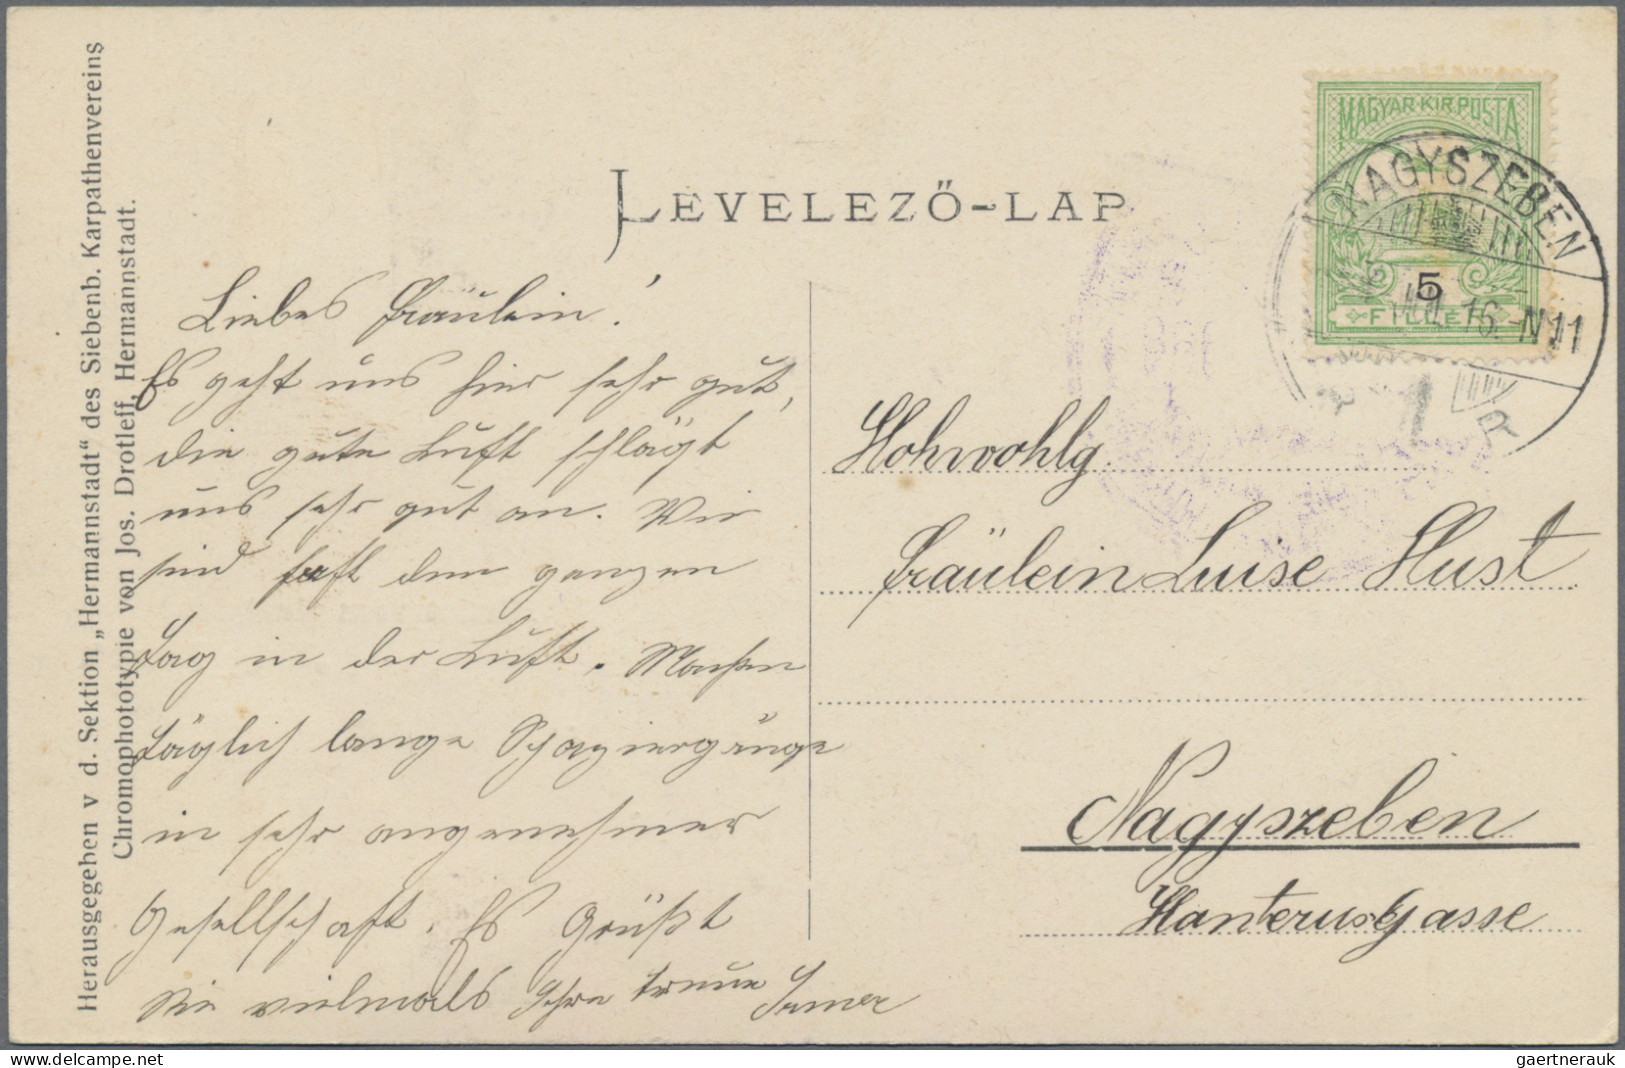 Herausgegeben v d. Sektion „Hermannstadt“ des Siebenb. Karpathenvereins
Chromophototypie von Jos. Drotleff, Hermannstadt.
LEVELEZŐ-LAP
MAGYAR·KIR·POSTA
5
FILLÉR
NAGYSZEBEN
16. N 11
Liebes Fräulein!
Es geht uns hier sehr gut,
die gute Luft schlägt
uns sehr gut an. Wir
sind fast den ganzen
Tag in der Luft. Machen
täglich lange Spaziergänge
in sehr angenehmer
Gesellschaft. Es Grüßt
Sie vielmals Ihre treue
Hohwohlg.
Fräulein Luise Hust
Nagyszeben
Gasse
gaertnerauk